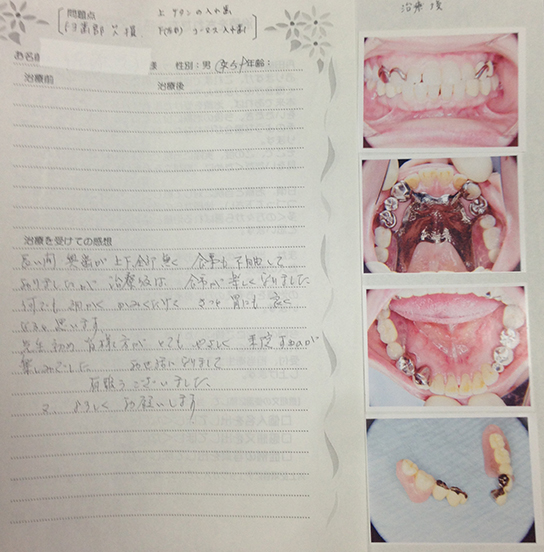 問題点
臼歯部欠損
上 チタンの入れ歯
下(部分) コーヌス入れ歯
治療後
お名前
様 性別:男 女 年齢:
治療前 治療後
治療を受けての感想
長い間 奥歯が上下合計無く 食事も不自由して
おりましたが 治療後は 食事が楽しくなりました
何でも 細かく かみくだけて きっと 胃にも 良く
思います
先生初め 皆様方が とても やさしく 毎度
楽しみでした お世話になりまして
有難うございました
又、よろしく お願いします